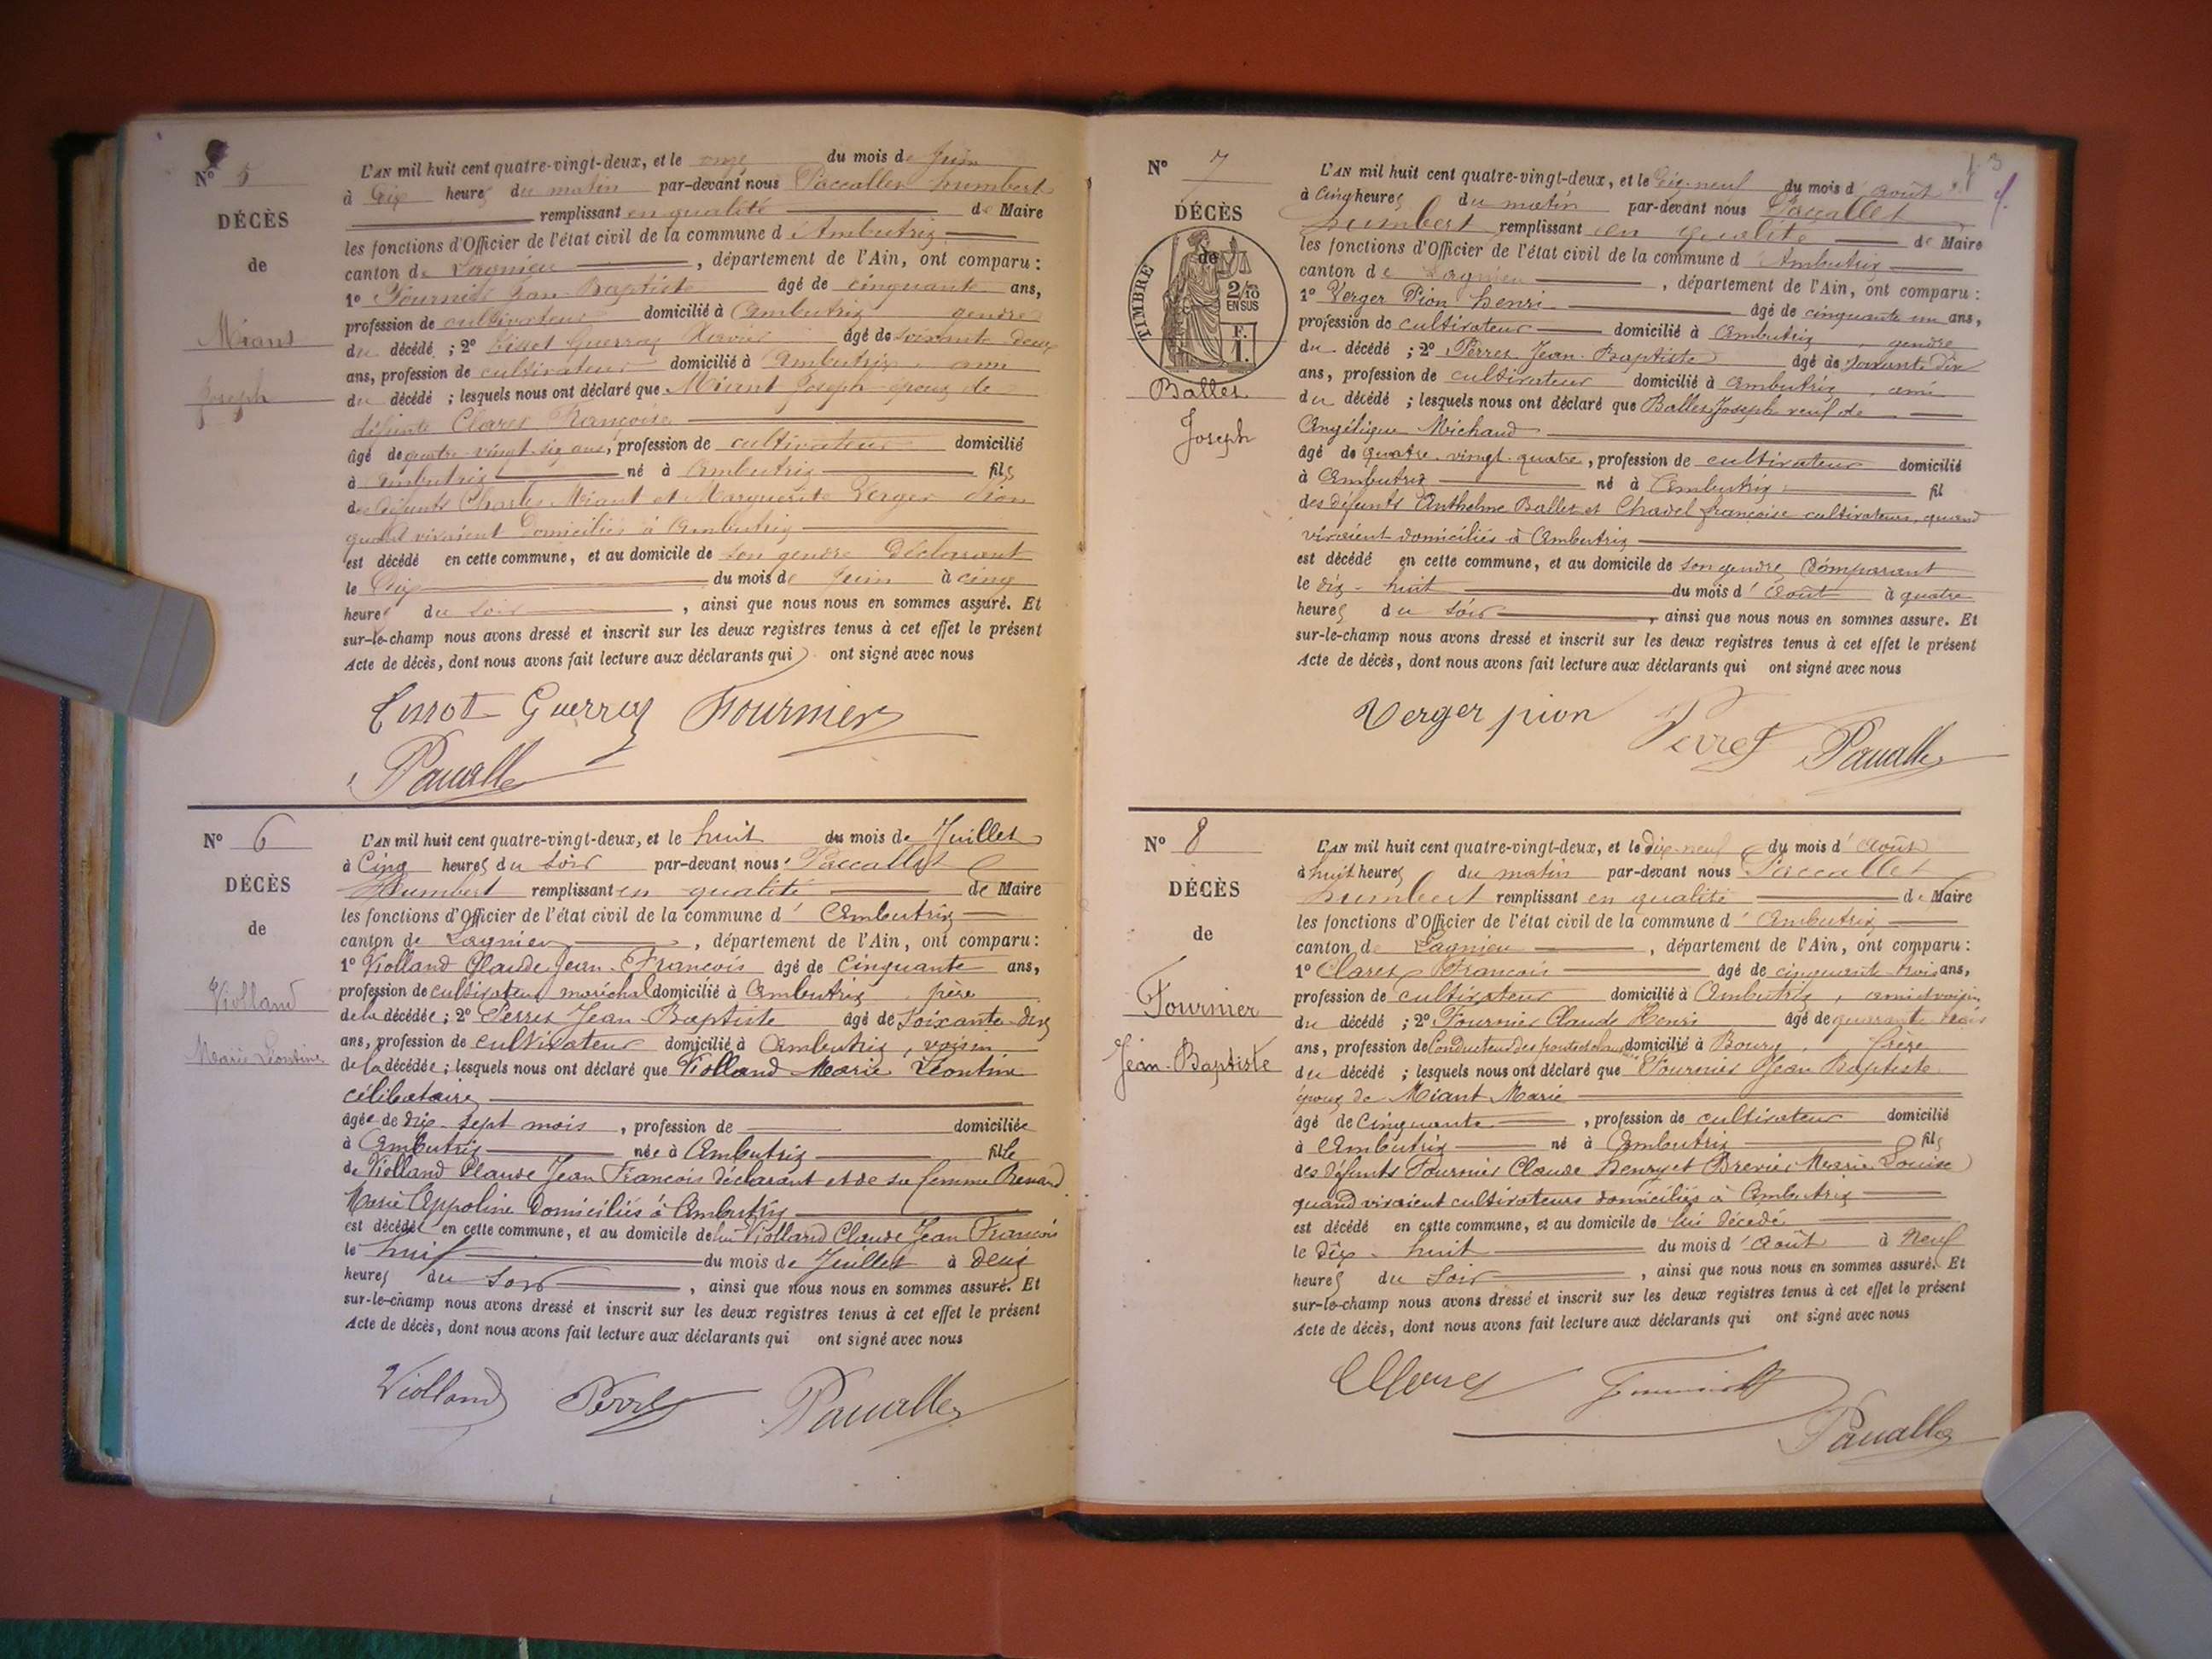 Nº 5
DÉCÈS
de
Miant
Joseph
L'AN mil huit cent quatre-vingt-deux, et le onze du mois de Juin
à Dix heures du matin par-devant nous Paccallet humbert
remplissant en qualité de Maire
les fonctions d'Officier de l'état civil de la commune d'Ambutrix
canton de Lagnieu, département de l'Ain, ont comparu :
1º Fournier Jean Baptiste âgé de cinquante ans,
profession de cultivateur domicilié à Ambutrix gendre
du décédé ; 2º Guerray âgé de soixante deux
ans, profession de cultivateur domicilié à Ambutrix, ami
du décédé ; lesquels nous ont déclaré que Miant Joseph époux de
défunte Claret Françoise
âgé de quatre-vingt-six ans, profession de cultivateur domicilié
à Ambutrix né à Ambutrix fils
de défunts Charles Miant et Marguerite Verger Pion
quand vivaient Domiciliés à Ambutrix
est décédé en cette commune, et au domicile de son gendre Déclarant
le Dix du mois de Juin à cinq
heures du soir, ainsi que nous nous en sommes assuré. Et
sur-le-champ nous avons dressé et inscrit sur les deux registres tenus à cet effet le présent
Acte de décès, dont nous avons fait lecture aux déclarants qui ont signé avec nous
Guerray Fournier
Paccallet
Nº 6
DÉCÈS
de
Violland
Marie Léontine
L'AN mil huit cent quatre-vingt-deux, et le huit du mois de Juillet
à Cinq heures du soir par-devant nous Paccallet
Humbert remplissant en qualité de Maire
les fonctions d'Officier de l'état civil de la commune d'Ambutrix
canton de Lagnieu, département de l'Ain, ont comparu :
1º Violland Claude Jean François âgé de Cinquante ans,
profession de cultivateur maréchal domicilié à Ambutrix, père
de la décédée ; 2º Perret Jean Baptiste âgé de soixante-dix
ans, profession de cultivateur domicilié à Ambutrix, voisin
de la décédée ; lesquels nous ont déclaré que Violland Marie Léontine
célibataire
âgée de dix-sept mois, profession de domiciliée
à Ambutrix née à Ambutrix fille
de Violland Claude Jean François déclarant et de sa femme Renard
Marie Appoline Domiciliés à Ambutrix
est décédée en cette commune, et au domicile de lui Violland Claude Jean François
le huit du mois de Juillet à Deux
heures du soir, ainsi que nous nous en sommes assuré. Et
sur-le-champ nous avons dressé et inscrit sur les deux registres tenus à cet effet le présent
Acte de décès, dont nous avons fait lecture aux déclarants qui ont signé avec nous
Violland Perret Paccallet
Nº 7
DÉCÈS
de
TIMBRE
2/10
EN SUS
F.
1.
Ballet
Joseph
L'AN mil huit cent quatre-vingt-deux, et le dix-neuf du mois d'août
à Cinq heures du matin par-devant nous Paccallet
humbert remplissant en qualité de Maire
les fonctions d'Officier de l'état civil de la commune d'Ambutrix
canton de Lagnieu, département de l'Ain, ont comparu :
1º Verger Pion henri âgé de cinquante un ans,
profession de cultivateur domicilié à Ambutrix, gendre
du décédé ; 2º Perret Jean-Baptiste âgé de soixante dix
ans, profession de cultivateur domicilié à Ambutrix, ami
du décédé ; lesquels nous ont déclaré que Ballet Joseph veuf de
Angélique Michaud
âgé de quatre-vingt-quatre, profession de cultivateur domicilié
à Ambutrix né à Ambutrix fil
des défunts Anthelme Ballet et Chavel françoise cultivateurs, quand
vivaient domiciliés à Ambutrix
est décédé en cette commune, et au domicile de son gendre Comparant
le dix-huit du mois d'Août à quatre
heures du soir, ainsi que nous nous en sommes assure. Et
sur-le-champ nous avons dressé et inscrit sur les deux registres tenus à cet effet le présent
Acte de décès, dont nous avons fait lecture aux déclarants qui ont signé avec nous
Verger pion Perret Paccallet
Nº 8
DÉCÈS
de
Fournier
Jean-Baptiste
L'AN mil huit cent quatre-vingt-deux, et le dix-neuf du mois d'Août
à huit heures du matin par-devant nous Paccallet
humbert remplissant en qualité de Maire
les fonctions d'Officier de l'état civil de la commune d'Ambutrix
canton de Lagnieu, département de l'Ain, ont comparu :
1º Claret François âgé de cinquante-trois ans,
profession de cultivateur domicilié à Ambutrix, ami et voisin
du décédé ; 2º Fournier Claude Henri âgé de quarante trois
ans, profession de Conducteur des ponts domicilié à Bourg, frère
du décédé ; lesquels nous ont déclaré que Fournier Jean Baptiste
époux de Miant Marie
âgé de Cinquante, profession de cultivateur domicilié
à Ambutrix né à Ambutrix fils
des défunts Fournier Claude henry et Brevier Marie Louise
quand vivaient cultivateurs domiciliés à Ambutrix
est décédé en cette commune, et au domicile de lui décédé
le Dix-huit du mois d'Août à Neuf
heures du Soir, ainsi que nous nous en sommes assuré. Et
sur-le-champ nous avons dressé et inscrit sur les deux registres tenus à cet effet le présent
Acte de décès, dont nous avons fait lecture aux déclarants qui ont signé avec nous
Claret Fournier
Paccallet